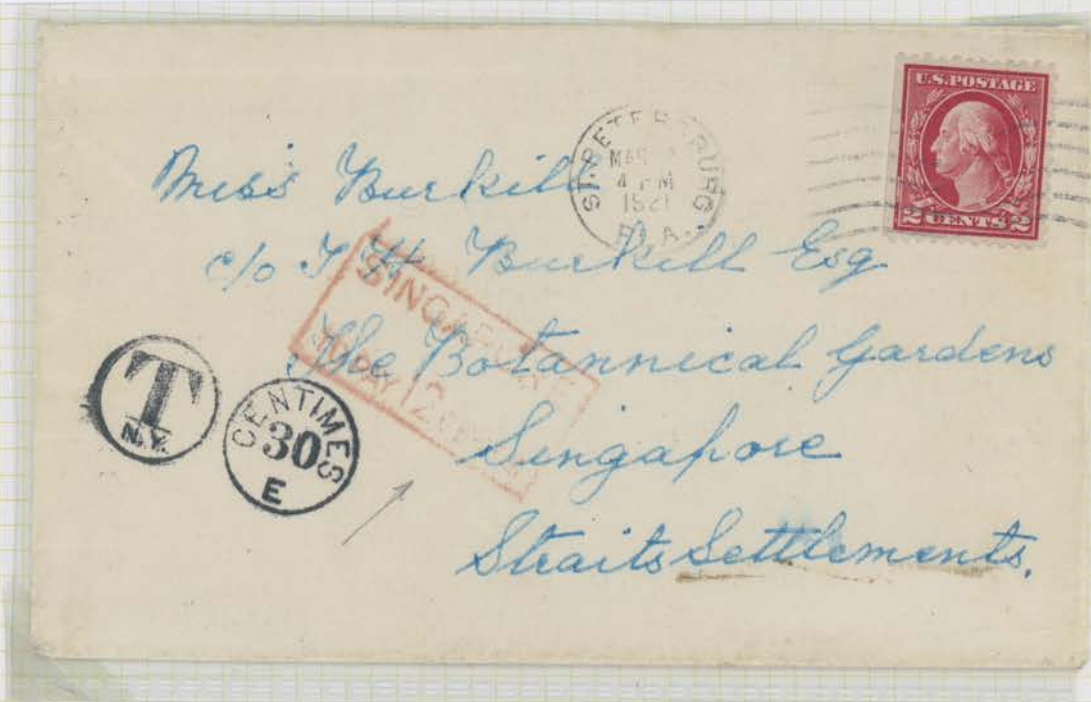 U.S.POSTAGE
2 CENTS 2
ST. PETERSBURG
MAR
4 PM
1921
FLA.
Miss Burkill
c/o I H Burkill Esq
The Botannical Gardens
Singapore
Straits Settlements.
SINGAPORE
TO PAY 12
T
N.Y.
CENTIMES
30
E